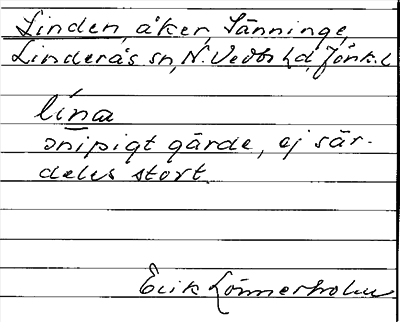 Linden, åker, Sänninge,
Linderås sn, N. Vedbo hd, Jönk. l
lína
snipigt gärde, ej sär-
deles stort.
Erik Lönnerholm